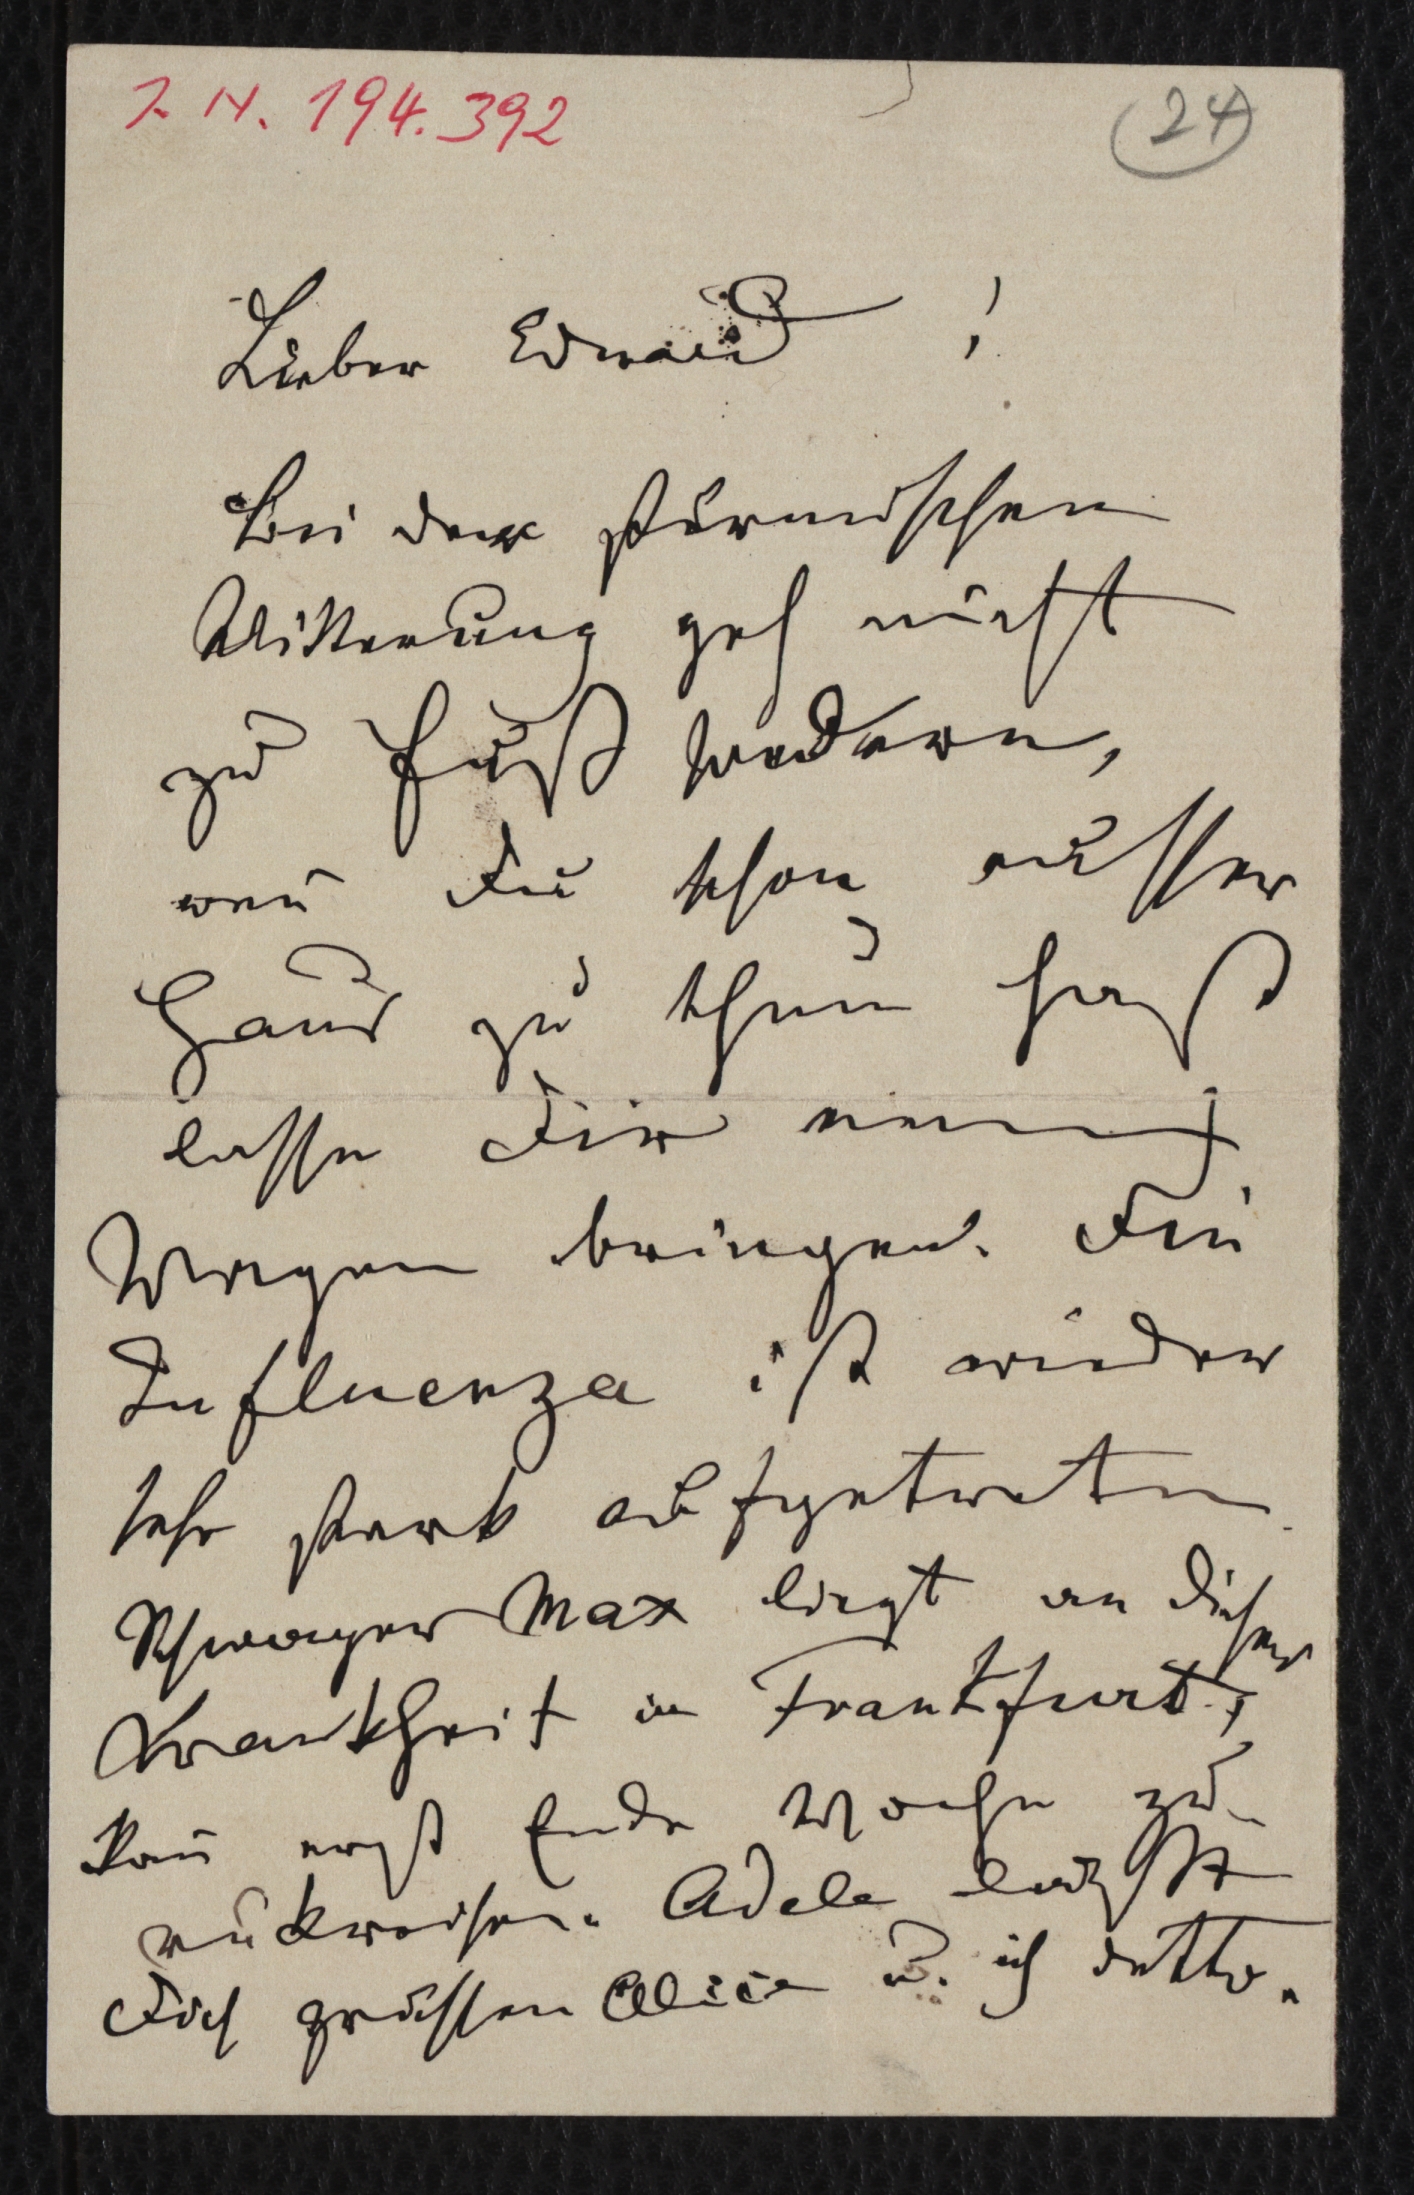 I. N. 194.392
24
Lieber Eduard !
Bei der stürmischen
Witterung geh nicht
zu Fuß
weñ Du schon ausser
Haus zu thun hast
lasse Dir einen
Wagen bringen. Die
Influenza ist wieder
sehr stark aufgetreten.
Schwager Max liegt an dieser
Krankheit in Frankfurt,
kañ erst Ende Woche zu-
rückreisen. Adele lässt
Dich grüssen Alice u. ich detto.